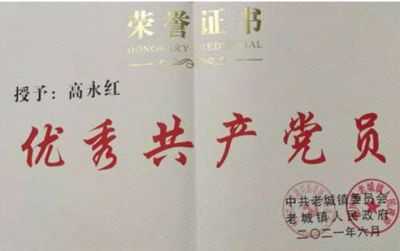 荣誉证书
HONORARY CREDENTIAL
授予：高永红
优秀共产党员
中共老城镇委员会
老城镇人民政府
二〇二一年六月